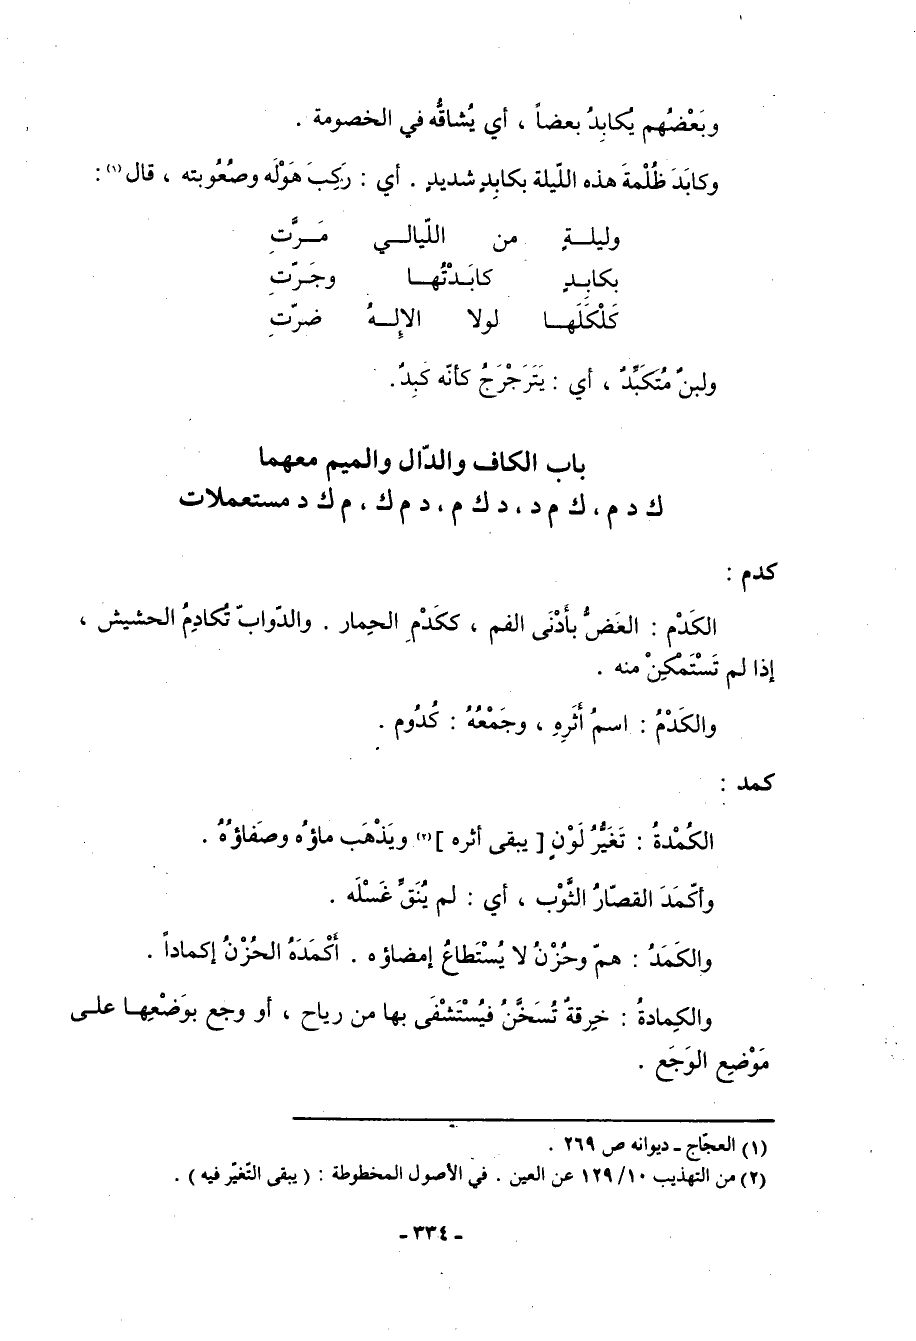 وبَعْضُهم يُكابِدُ بعضاً ، أي يُشاقُّه في الخصومة .
وكابَدَ ظُلْمةَ هذه اللّيلة بكابِدٍ شديدٍ . أي : رَكِبَ هَوْلَه وصُعُوبته ، قال(١) :
وليلــةٍ من اللّيالــي مَــرَّتِ
بكابِــدٍ كابَــدْتُهــا وجَــرّتِ
كَلْكَلَهــا لولا الإِلــهُ ضرّتِ
ولبنٌ مُتَكَبِّدٌ ، أي : يَتَرَجْرَجُ كأنّه كَبِدٌ.
باب الكاف والدّال والميم معهما
ك د م ، ك م د ، د ك م ، د م ك ، م ك د مستعملات
كدم :
الكَدْم : العَضُّ بأَدْنَى الفم ، ككَدْمِ الحِمار . والدّوابّ تُكادِمُ الحشيش ،
إذا لم تَسْتَمْكِنْ منه .
والكَدْمُ : اسمُ أَثَرِهِ ، وجَمْعُهُ : كُدُوم .
كمد :
الكُمْدةُ : تَغَيُّرُ لَوْنٍ [ يبقى أثره ](٢) ويَذْهَب ماؤُه وصَفاؤُهُ .
وأكّمَدَ القصّارُ الثَّوْب ، أي : لم يُنَقِّ غَسْلَه .
والكَمَدُ : همّ وحُزْنُ لا يُسْتَطاعُ إمضاؤه . أَكْمَدَهُ الحُزْنُ إكماداً .
والكِمادةُ : خِرقةٌ تُسَخَّنُ فيُسْتَشْفَى بها من رياح ، أو وجع بوَضْعِهـا علـى
مَوْضِع الوَجَع .
(١) العجّاج ـ ديوانه ص ٢٦٩ .
(٢) من التهذيب ١٠/ ١٢٩ عن العين . في الأصول المخطوطة : ( يبقى التّغيّر فيه ) .
ـ ٣٣٤ ـ